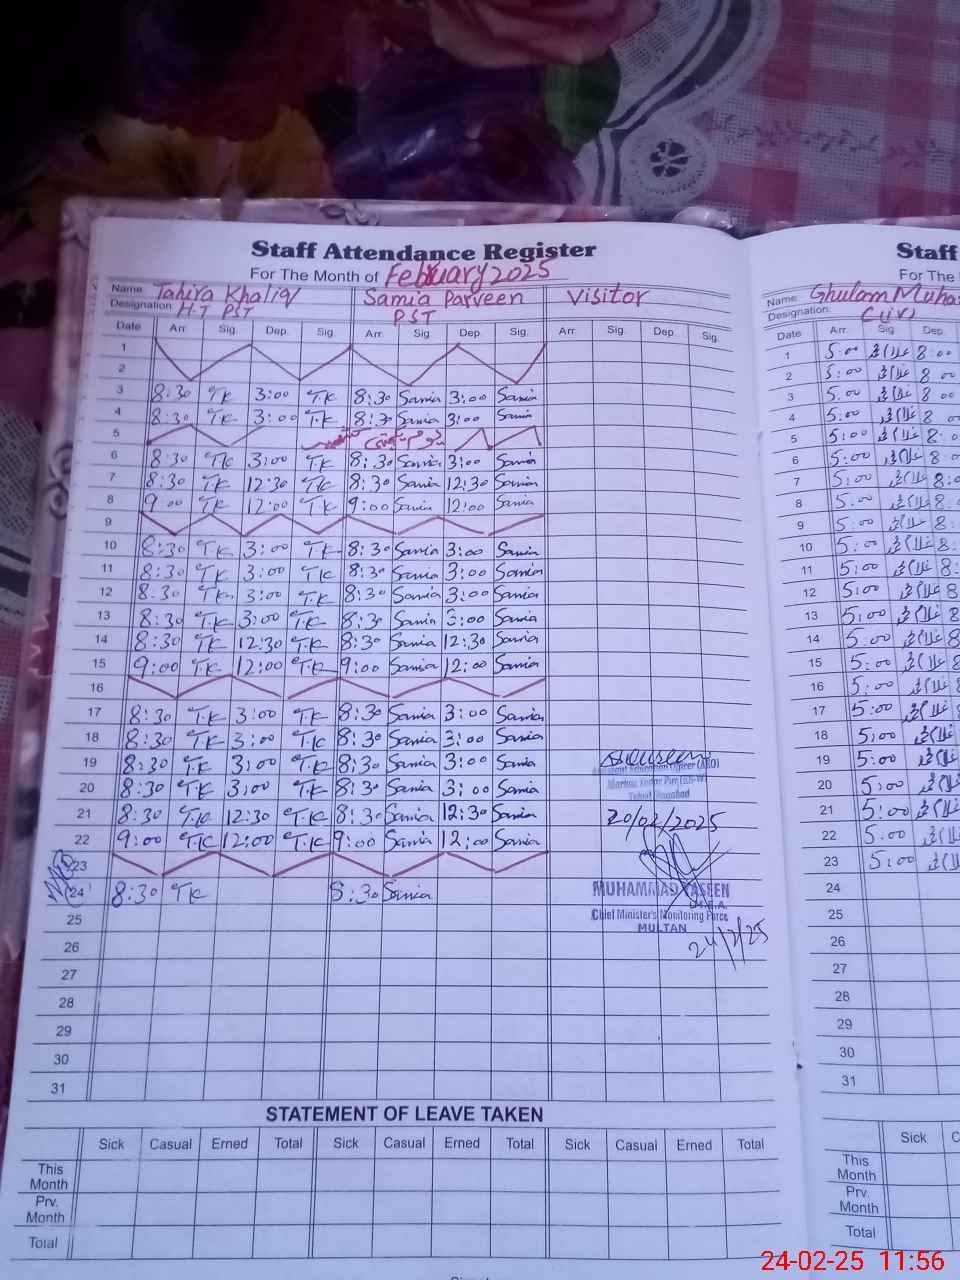 Staff Attendance Register
For The Month of February 2025
Name. Tahira Khaliq Samia Parveen Visitor
Designation. H.T PST PST
Date Arr. Sig. Dep. Sig. Arr. Sig. Dep. Sig. Arr. Sig. Dep. Sig.
1
2
3 8:30 TK 3:00 T.K 8:30 Samia 3:00 Samia
4 8:30 TK 3:00 T.K 8:30 Samia 3:00 Samia
5
6 8:30 TK 3:00 T.K 8:30 Samia 3:00 Samia
7 8:30 TK 12:30 TK 8:30 Samia 12:30 Samia
8 9:00 TK 12:00 T.K 9:00 Samia 12:00 Samia
9
10 8:30 T.K 3:00 TK 8:30 Samia 3:00 Samia
11 8:30 TK 3:00 TK 8:30 Samia 3:00 Samia
12 8:30 TK 3:00 T.K 8:30 Samia 3:00 Samia
13 8:30 TK 3:00 TK 8:30 Samia 3:00 Samia
14 8:30 TK 12:30 TK 8:30 Samia 12:30 Samia
15 9:00 T.K 12:00 T.K 9:00 Samia 12:00 Samia
16
17 8:30 T.K 3:00 T.K 8:30 Samia 3:00 Samia
18 8:30 TK 3:00 T.K 8:30 Samia 3:00 Samia
19 8:30 T.K 3:00 T.K 8:30 Samia 3:00 Samia
Assistant Education Officer (AEO)
20 8:30 T.K 3:00 T.K 8:30 Samia 3:00 Samia
21 8:30 T.K 12:30 T.K 8:30 Samia 12:30 Samia 20/02/2025
22 9:00 T.K 12:00 T.K 9:00 Samia 12:00 Samia
23
24 8:30 TK 8:30 Samia
MUHAMMAD YASEEN
M.E.A.
Chief Minister's Monitoring Force
MULTAN
24/2/25
25
26
27
28
29
30
31
STATEMENT OF LEAVE TAKEN
Sick Casual Erned Total Sick Casual Erned Total Sick Casual Erned Total
This Month
Prv. Month
Total
Staff
For The
Name: Ghulam Muha
Designation.
Date Arr. Sig. Dep.
1 5:00 8:00
2 5:00 8 00
3 5:00 8 00
4 5:00 8 00
5 5:00 8:0
6 5:00 8:0
7 5:00 8:0
8 5:00 8:0
9 5:00 8:
10 5:00 8:
11 5:00 8:
12 5:00 8
13 5:00 8
14 5:00 8
15 5:00 8
16 5:00
17 5:00
18 5:00
19 5:00
20 5:00
21 5:00
22 5:00
23 5:00
24
25
26
27
28
29
30
31
Sick C
This Month
Prv. Month
Total
24-02-25 11:56